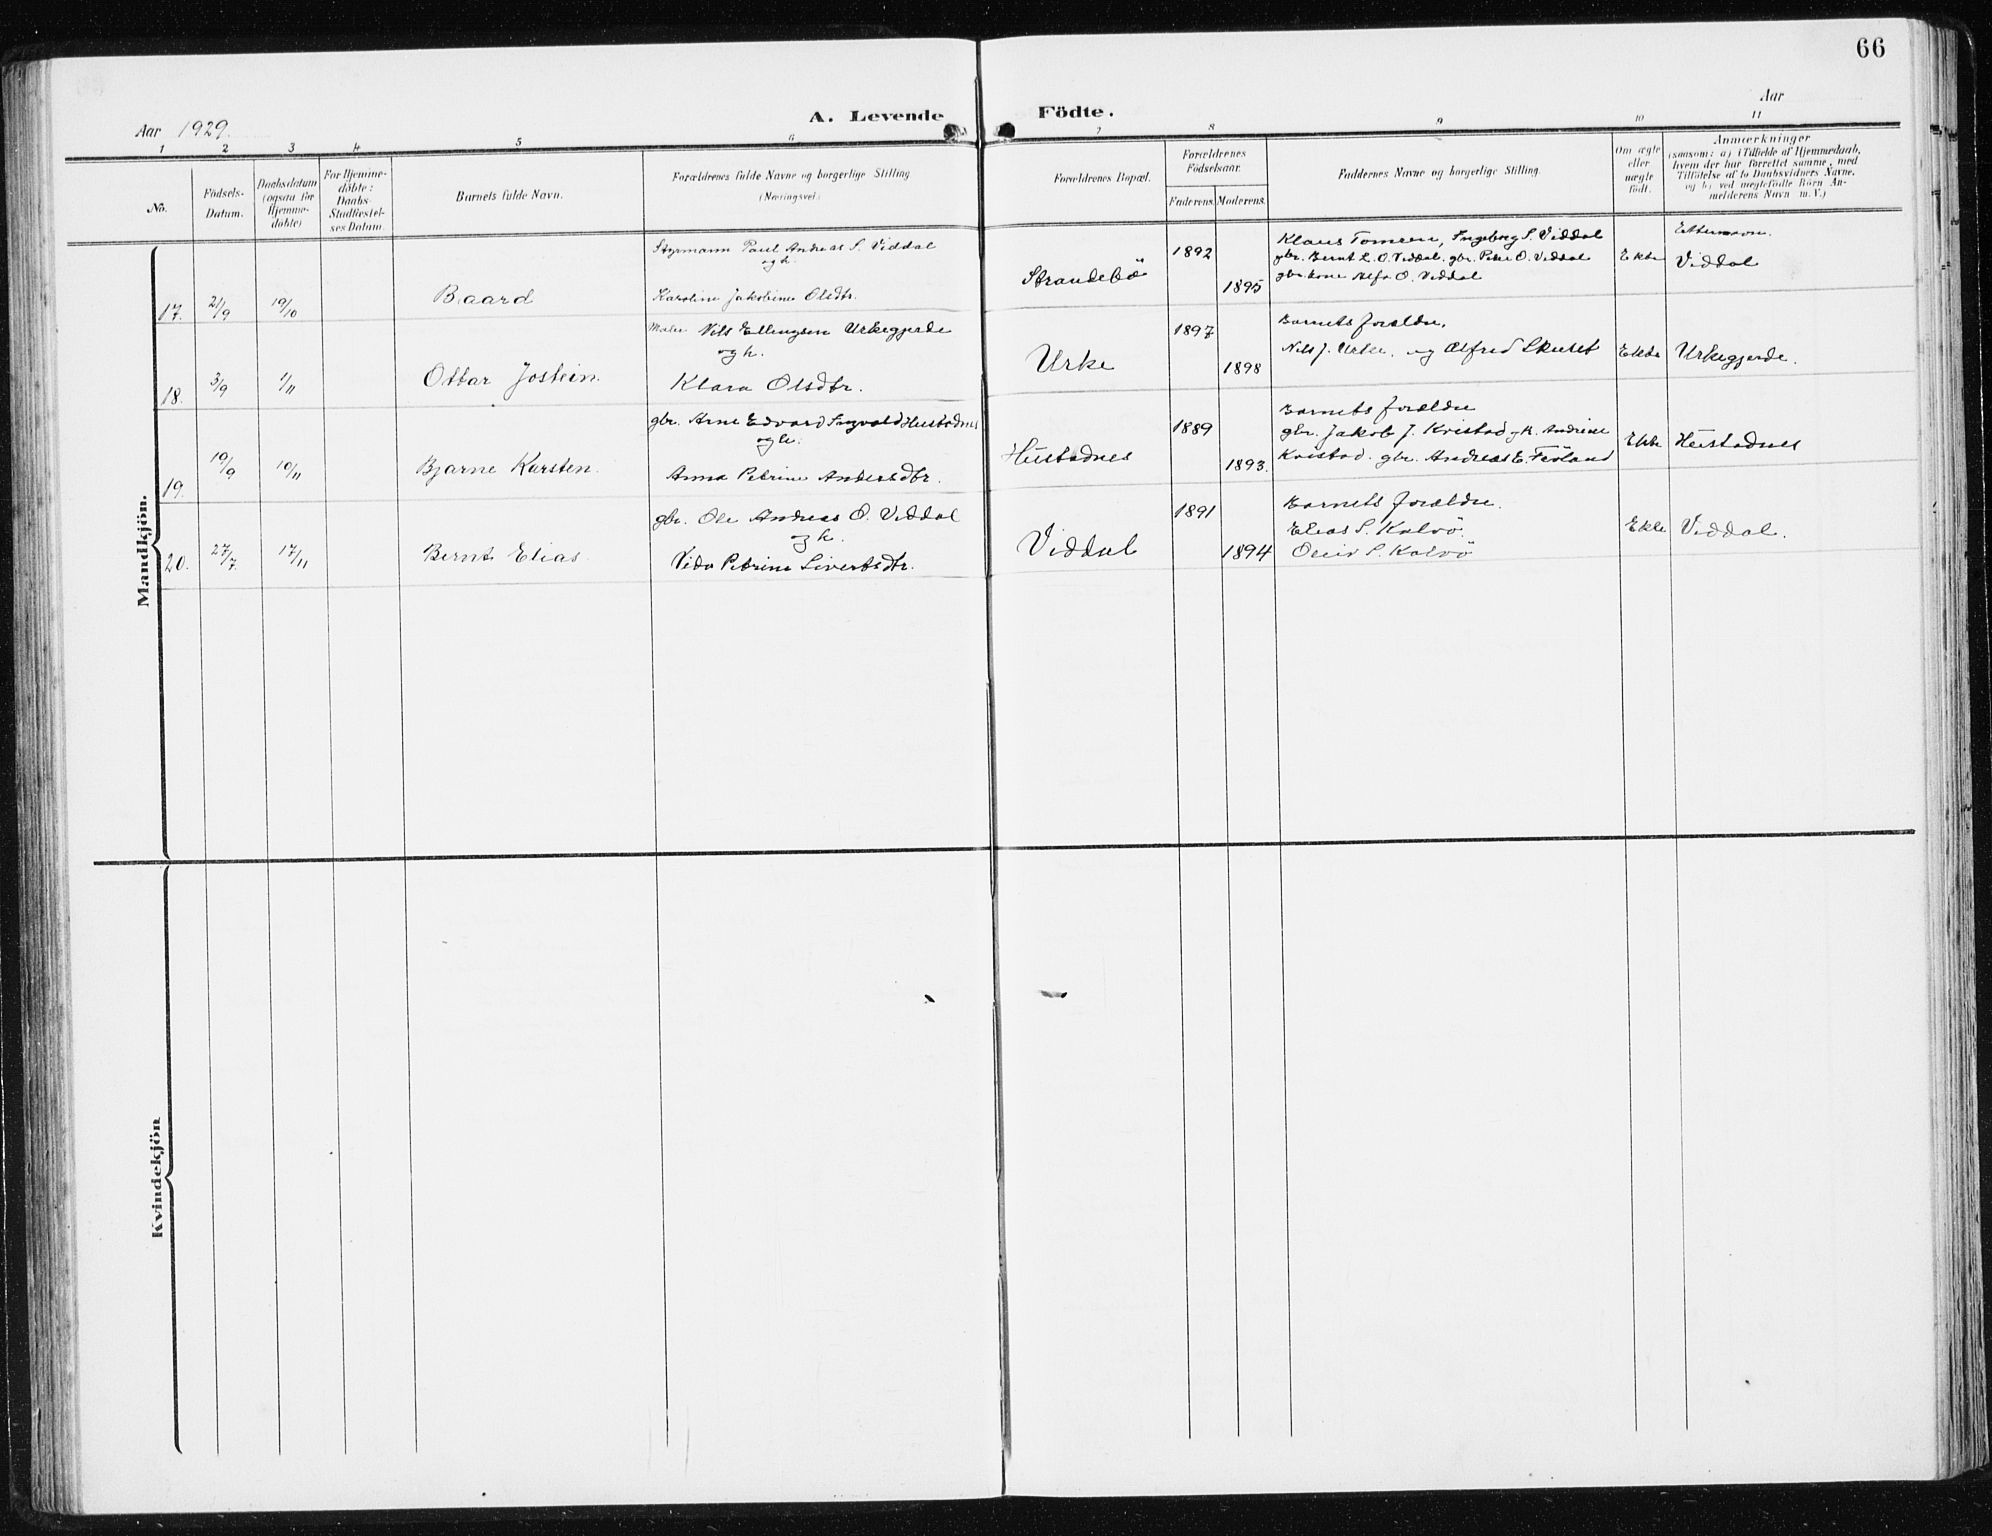 66
Aar 1929.
A. Levende Födte.
Aar
1 2 3 4 5 6 7 8 9 10 11
No.
Födsels-
Datum.
Daabsdatum
(ogsaa for
Hjemme-
döbte)
For Hjemme-
döbte:
Daabs-
Stadfæstel-
ses Datum.
Barnets fulde Navn.
Forældrenes fulde Navne og borgerlige Stilling
(Næringsvei)
Forældrenes Bopæl.
Forældrenes
Födselsaar.
Faderens. Moderens.
Faddernes Navne og borgerlige Stilling.
Om ægte
eller
uægte
födt.
Anmærkninger
(saasom: a) i Tilfælde af Hjemmedaab,
hvem der har forrettet samme, med
Tilföielse af to Daabsvidners Navne,
og b) ved uægtefödte Börn An-
melderens Navn m. V.)
Mandkjön.
17. 21/9 19/10 Baard
Styrmann Paul Andreas S. Viddal
og h.
Karoline Jakobine Olsdtr.
Strandebö
1892
1895
Klaus Tomren, Ingeborg S. Viddal
gbr. Bernt L. O. Viddal. gbr. Peder O. Viddal
gbr. kone Alfa O. Viddal
Ekte
Etternavn.
Viddal
18. 3/9 1/11 Ottar Jostein.
Maler Nils Ellingsen Urkegjerde
og h.
Klara Olsdtr.
Urke
1897
1898
Barnets foreldre.
Nils J. Urke. og Alfred Skuset
Ekte
Urkegjerde.
19. 19/9 10/11 Bjarne Karsten.
gbr. Arne Edvard Ingvald Hustadnes
og h.
Anna Petrine Andersdtr.
Hustadnes
1889
1893.
Barnets foreldre
gbr. Jakob J. Kvistad og k. Andrine
Kvistad. gbr. Andreas E.
Ekte
Hustadnes
20. 27/7. 17/11 Bernt Elias.
gbr. Ole Andreas O. Viddal
og h.
Vida Petrine Sivertsdtr.
Viddal
1891
1894
Barnets foreldre.
Elias S. Kalvö.
S. Kalvö
Ekte
Viddal.
Kvindekjön